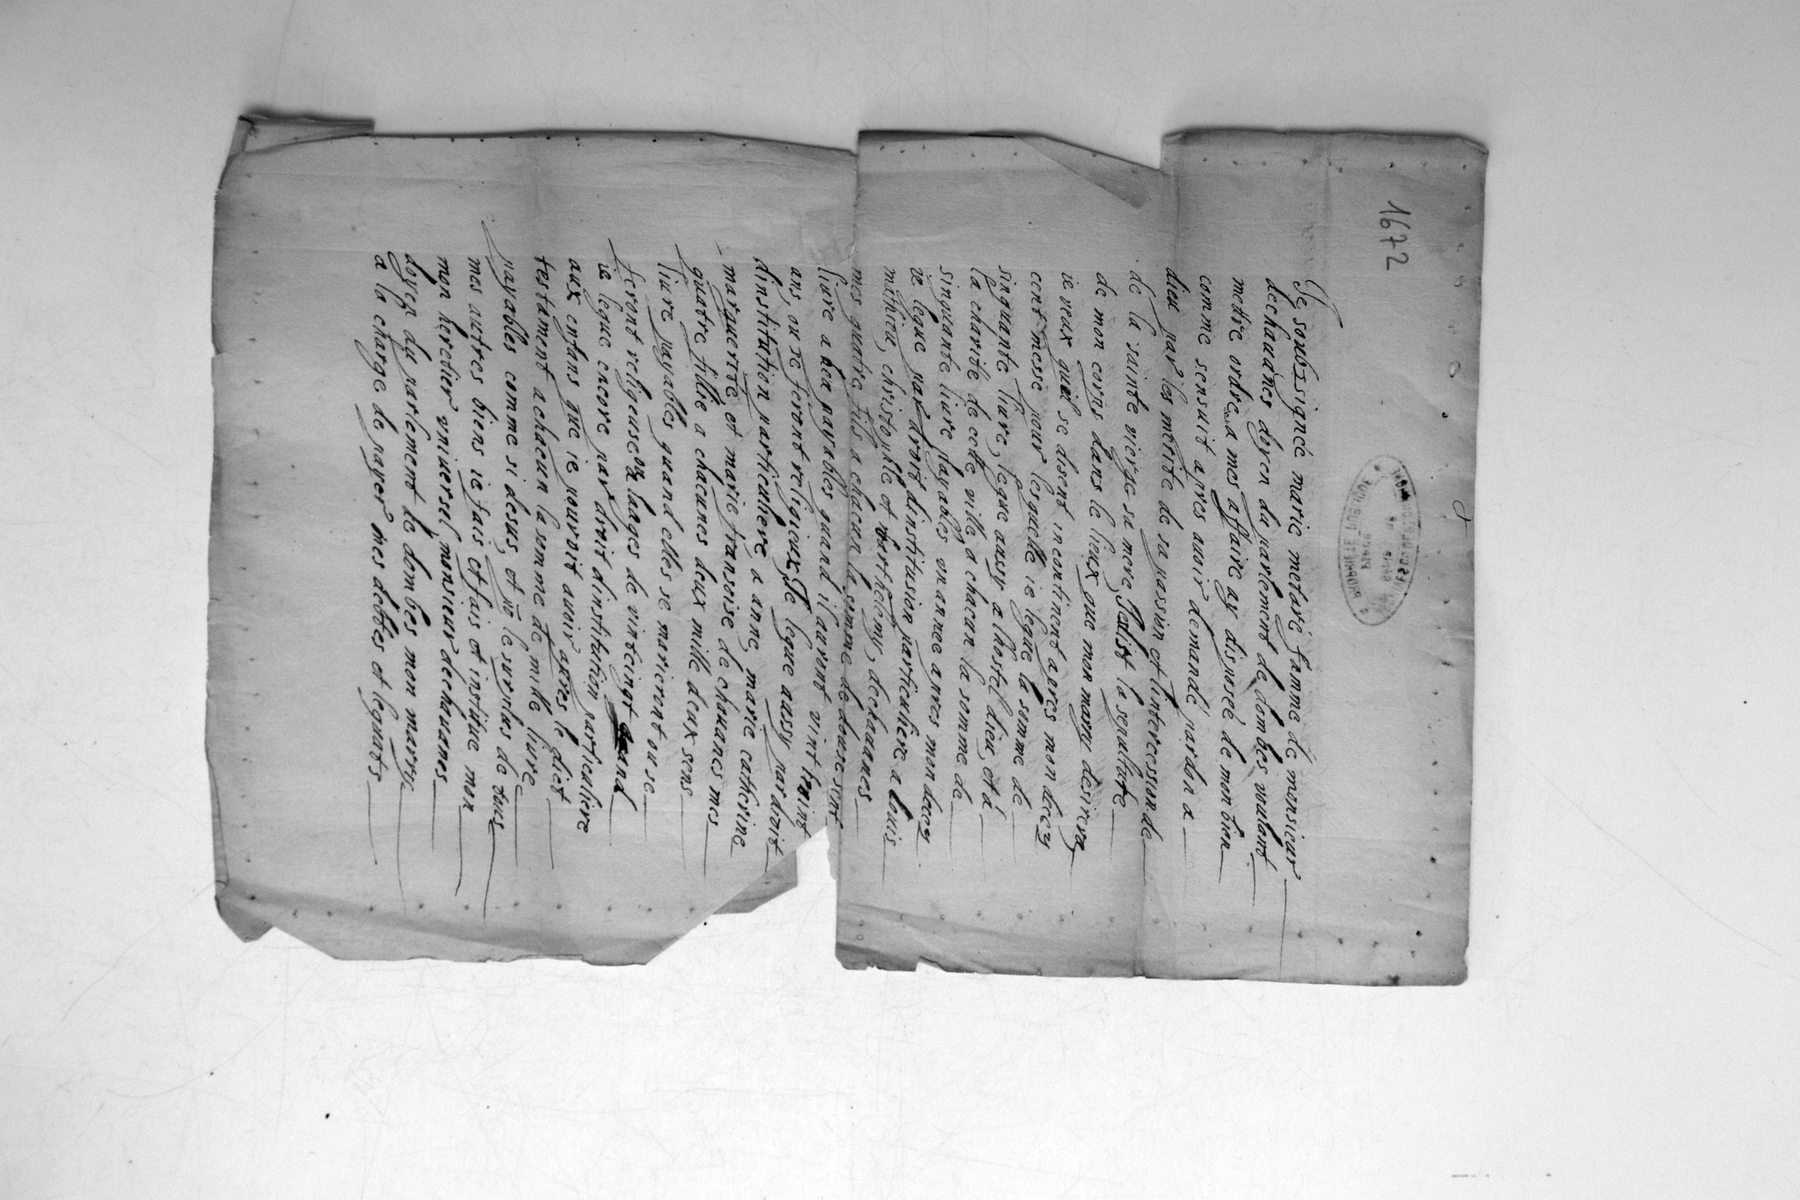 1672
Je soubzsignée marie metaré famme de monsieur
dechauanes doyen du parlement de dombes voulant
mettre ordre a mes affaire ay disposeé de mon bien
comme sensuit apres auoir demandé pardon a
dieu par les merite de sa passion et lintercession de
de la sainte vierge sa mere Jalist la sepulture
de mon corps dans le lieux que mon marry desirera
ie veux quil se disent incontinent apres mon decez
cent messe pour lesquelle ie legue la somme de
sinquante liure, legue aussy a lhostel dieu et a
la charite de cette ville a chacun la somme de
sinquante liure payables en annee apres mon decez
ie legue par droit dinstitusion particuliere a louis
mathieu, christophle et berthelemy, dechauanes
mes quatre fils a chacun la somme de douse sent
liure a eux payables quand il auront vint saint
ans, ou se feront religieux, Je legue aussy par droit
dinstitution particuliere a anne, marie catherine
marguerite et marie fransoise de chauanes mes
quatre fillie a chacunes deux mille deux sens
liure payables quand elles se marieront ou se
feront religeuse ou laages de vintcinqt and
ie legue encore par droit dintitution particuliere
aux enfans que ie pouroit auoir apres le dict
testament a chacun la somme de mille liure
payables comme si desus, et pō le surplus de tous
mes autres biens ie fais et fais et institue mon
mon heretier vniuersel monsieur dechauanes
doyen du parlement de dombes mon marry
a la charge de payer mes debtes et leguats